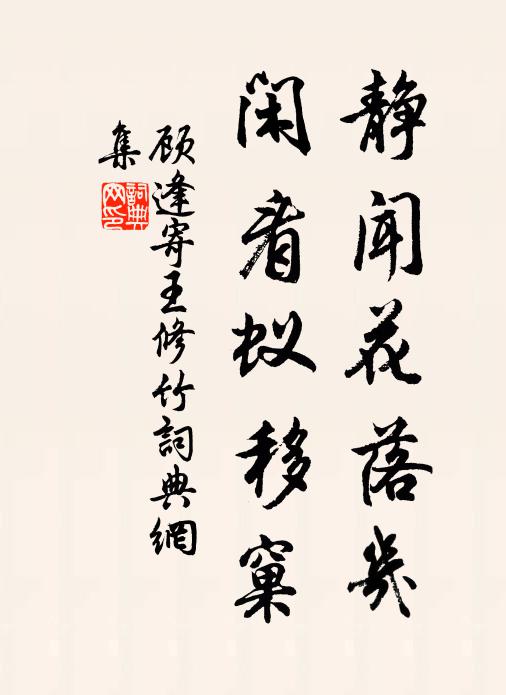 静闻花落几
闲看蚁移窠
顾逢寄王修竹詞典網
集
詞典
网印